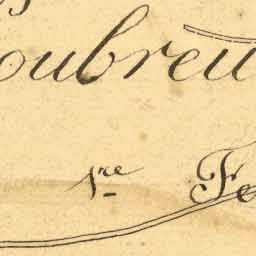 oubreu
1re Fe